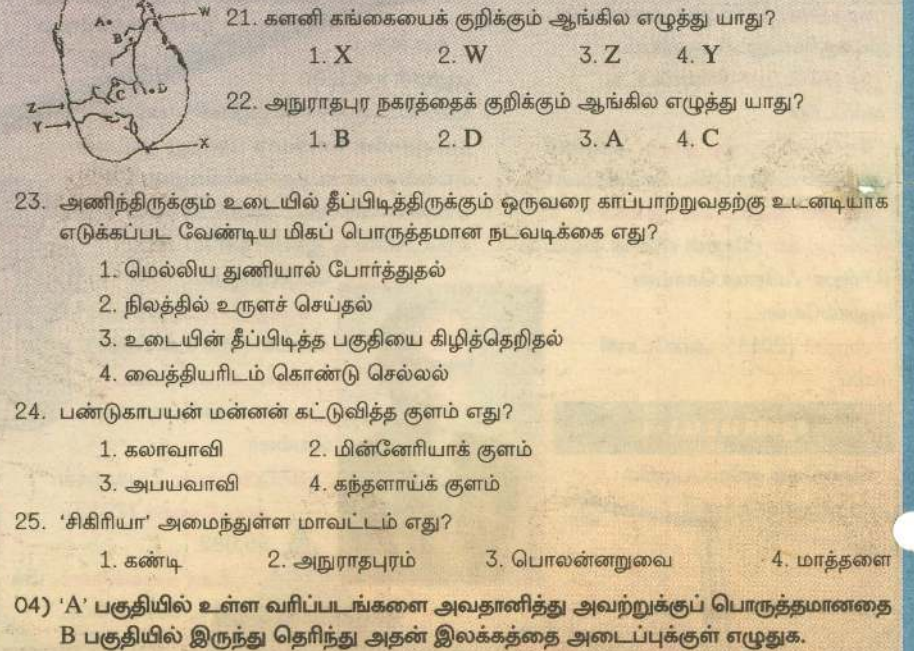 A
B
W
C
D
Z
Y
X
21. களனி கங்கையைக் குறிக்கும் ஆங்கில எழுத்து யாது?
1. X 2. W 3. Z 4. Y
22. அநுராதபுர நகரத்தைக் குறிக்கும் ஆங்கில எழுத்து யாது?
1. B 2. D 3. A 4. C
23. அணிந்திருக்கும் உடையில் தீப்பிடித்திருக்கும் ஒருவரை காப்பாற்றுவதற்கு உடனடியாக
எடுக்கப்பட வேண்டிய மிகப் பொருத்தமான நடவடிக்கை எது?
1. மெல்லிய துணியால் போர்த்துதல்
2. நிலத்தில் உருளச் செய்தல்
3. உடையின் தீப்பிடித்த பகுதியை கிழித்தெறிதல்
4. வைத்தியரிடம் கொண்டு செல்லல்
24. பண்டுகாபயன் மன்னன் கட்டுவித்த குளம் எது?
1. கலாவாவி 2. மின்னேரியாக் குளம்
3. அபயவாவி 4. கந்தளாய்க் குளம்
25. 'சிகிரியா' அமைந்துள்ள மாவட்டம் எது?
1. கண்டி 2. அநுராதபுரம் 3. பொலன்னறுவை 4. மாத்தளை
04) 'A' பகுதியில் உள்ள வரிப்படங்களை அவதானித்து அவற்றுக்குப் பொருத்தமானதை
B பகுதியில் இருந்து தெரிந்து அதன் இலக்கத்தை அடைப்புக்குள் எழுதுக.